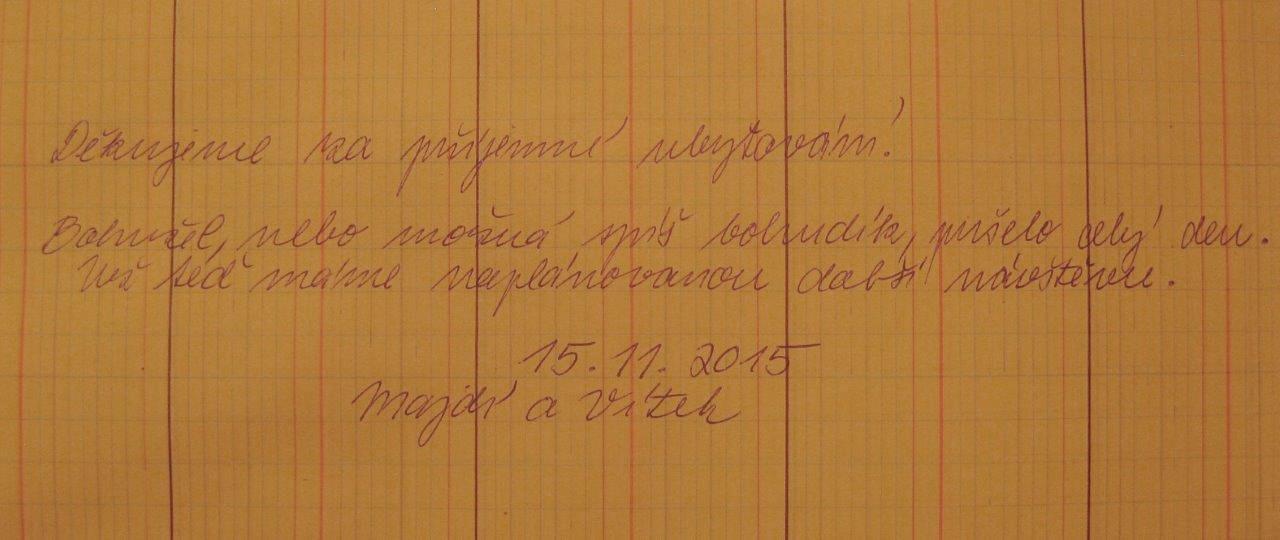 Děkujeme za příjemné ubytování!
Bohužel, nebo možná spíš bohudík, pršelo celý den.
Už teď máme naplánovanou další návštěvu.
15.11.2015
Majdí a Vítek